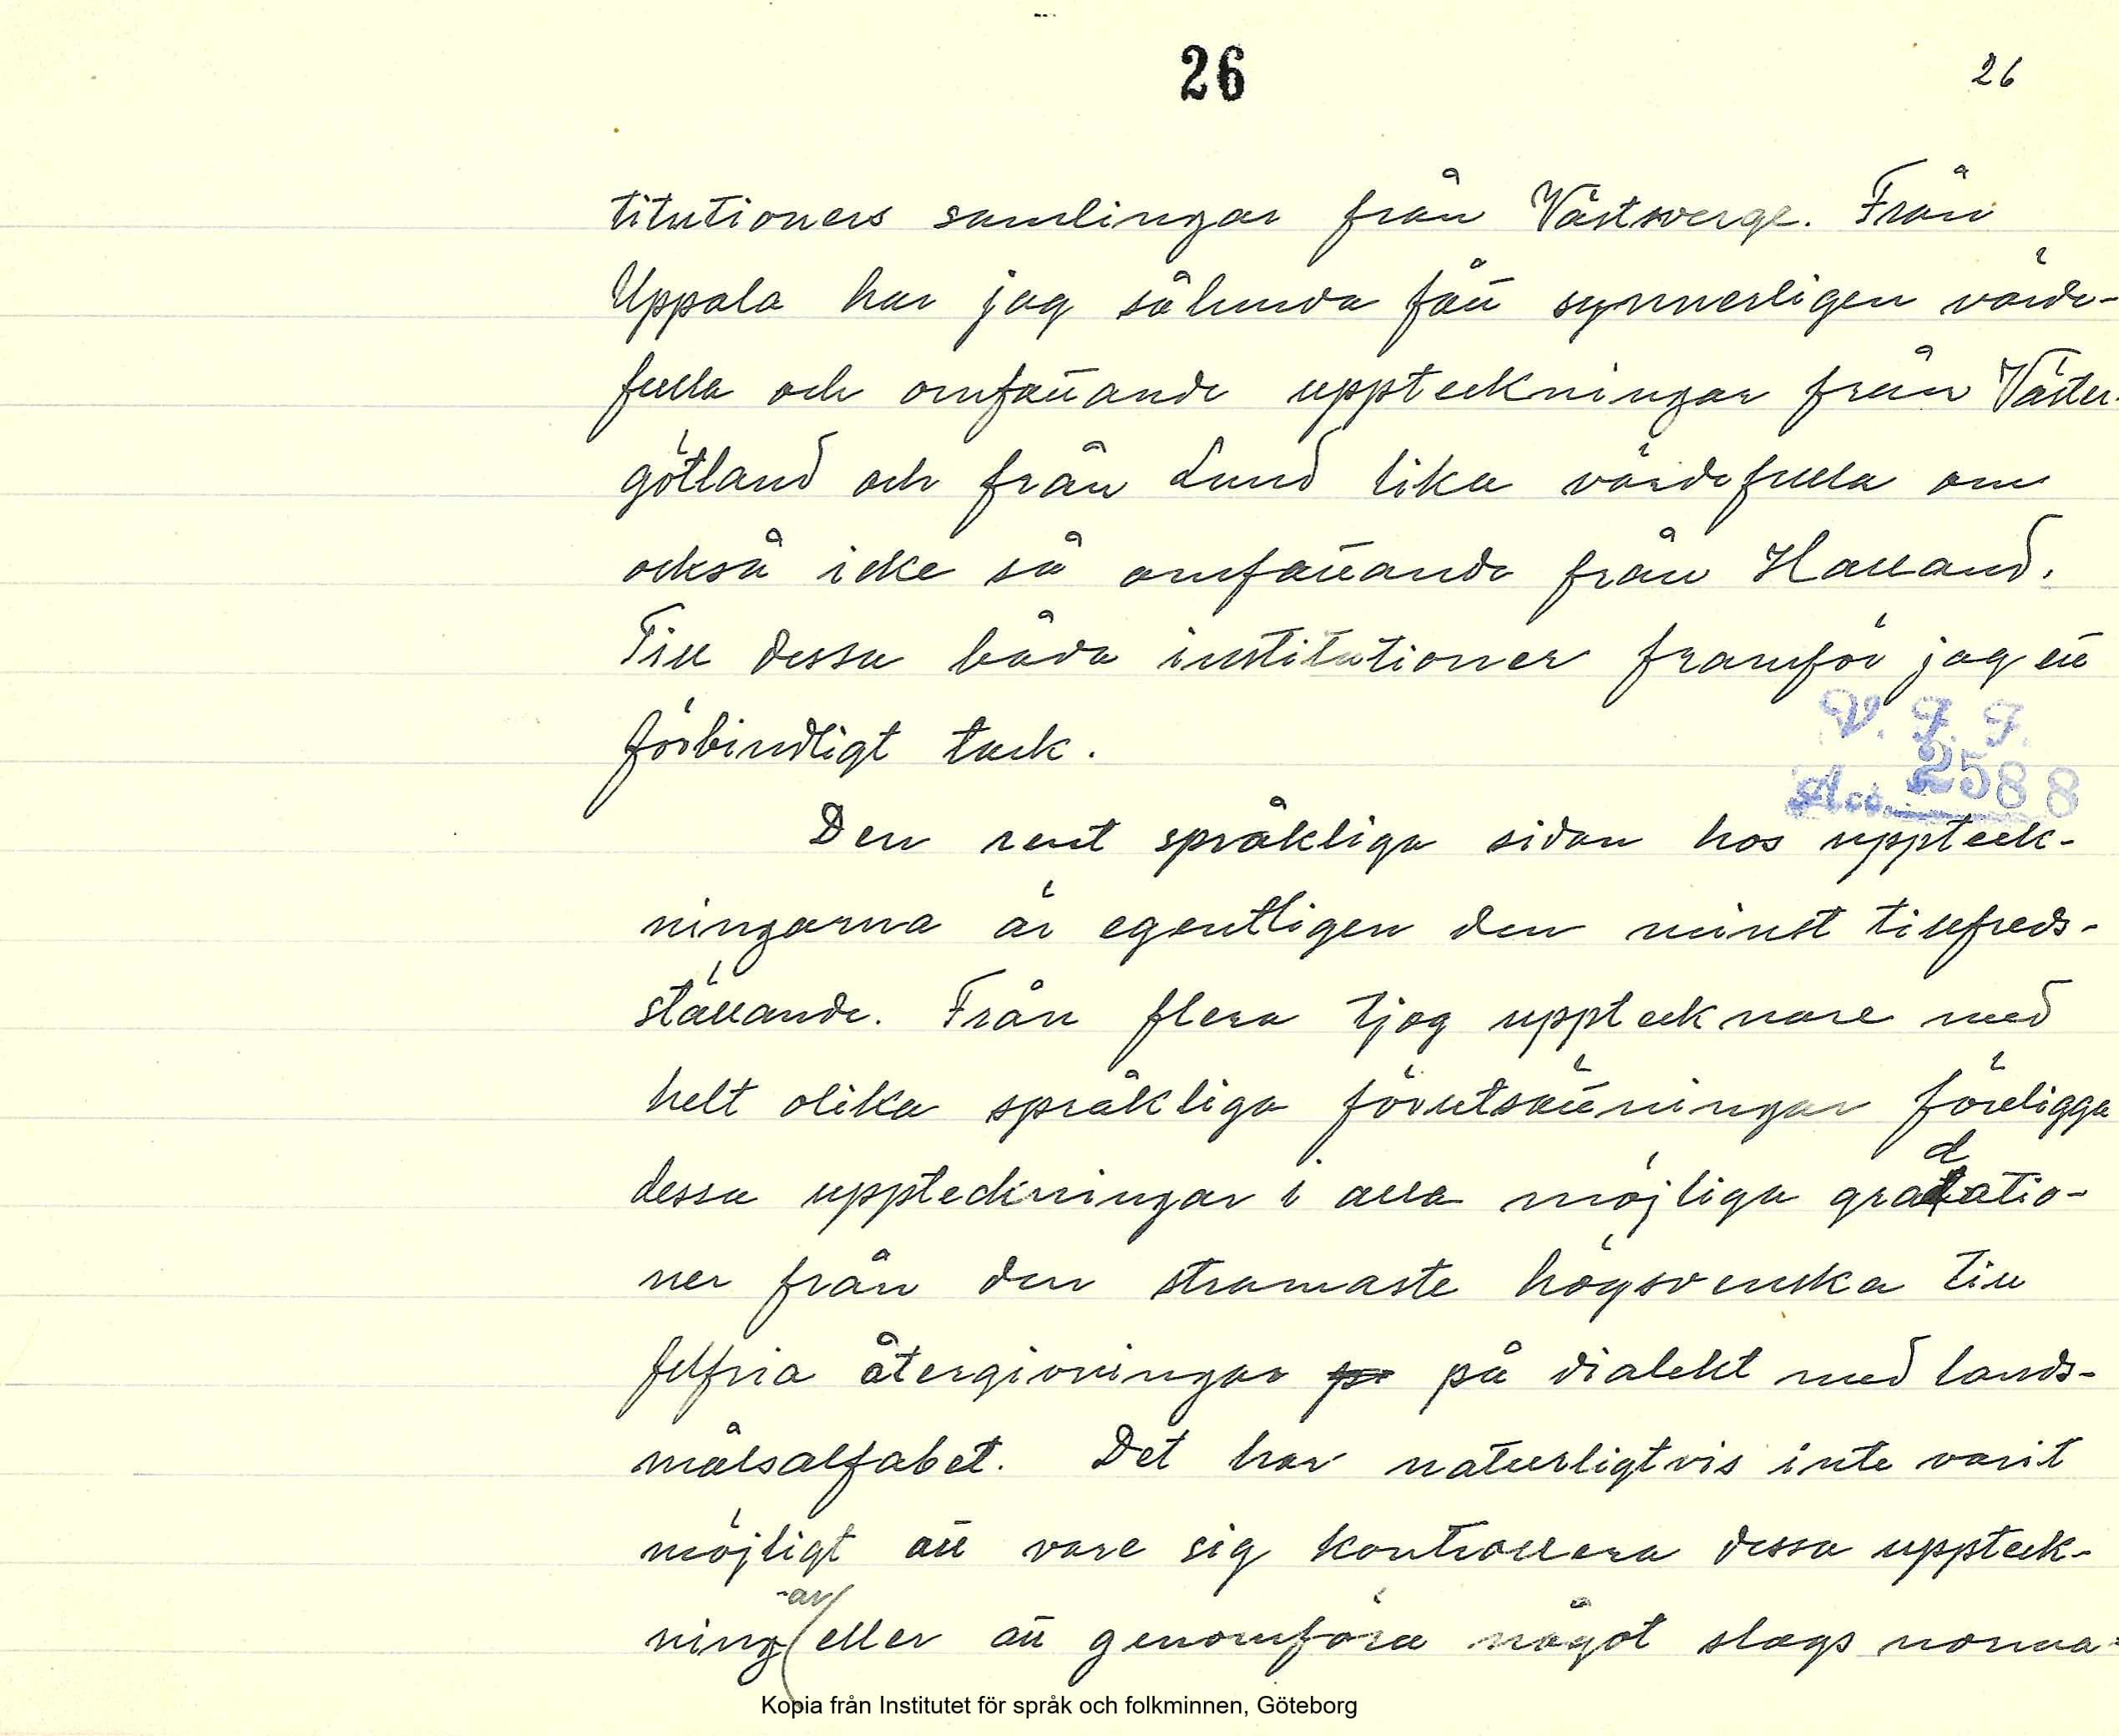 26
26
titutioners samlingar från Västsverge. Från
Uppsala har jag sålunda fått synnerligen värde-
fulla och omfattande uppteckningar från Väster-
götland och från Lund lika värdefulla om
också icke så omfattande från Halland.
Till dessa båda institutioner framför jag ett
förbindligt tack.
V. F. F.
Acc. 2588
Den rent språkliga sidan hos uppteck-
ningarna är egentligen den minst tillfreds-
ställande. Från flera tjog upptecknare med
helt olika språkliga förutsättningar föreligga
dessa uppteckningar i alla möjliga gradatio-
ner från den stramaste högsvenska till
felfria återgivningar på dialekt med lands-
målsalfabet. Det har naturligtvis inte varit
möjligt att vare sig kontrollera dessa uppteck-
ningar eller att genomföra något slags norma-
Kopia från Institutet för språk och folkminnen, Göteborg